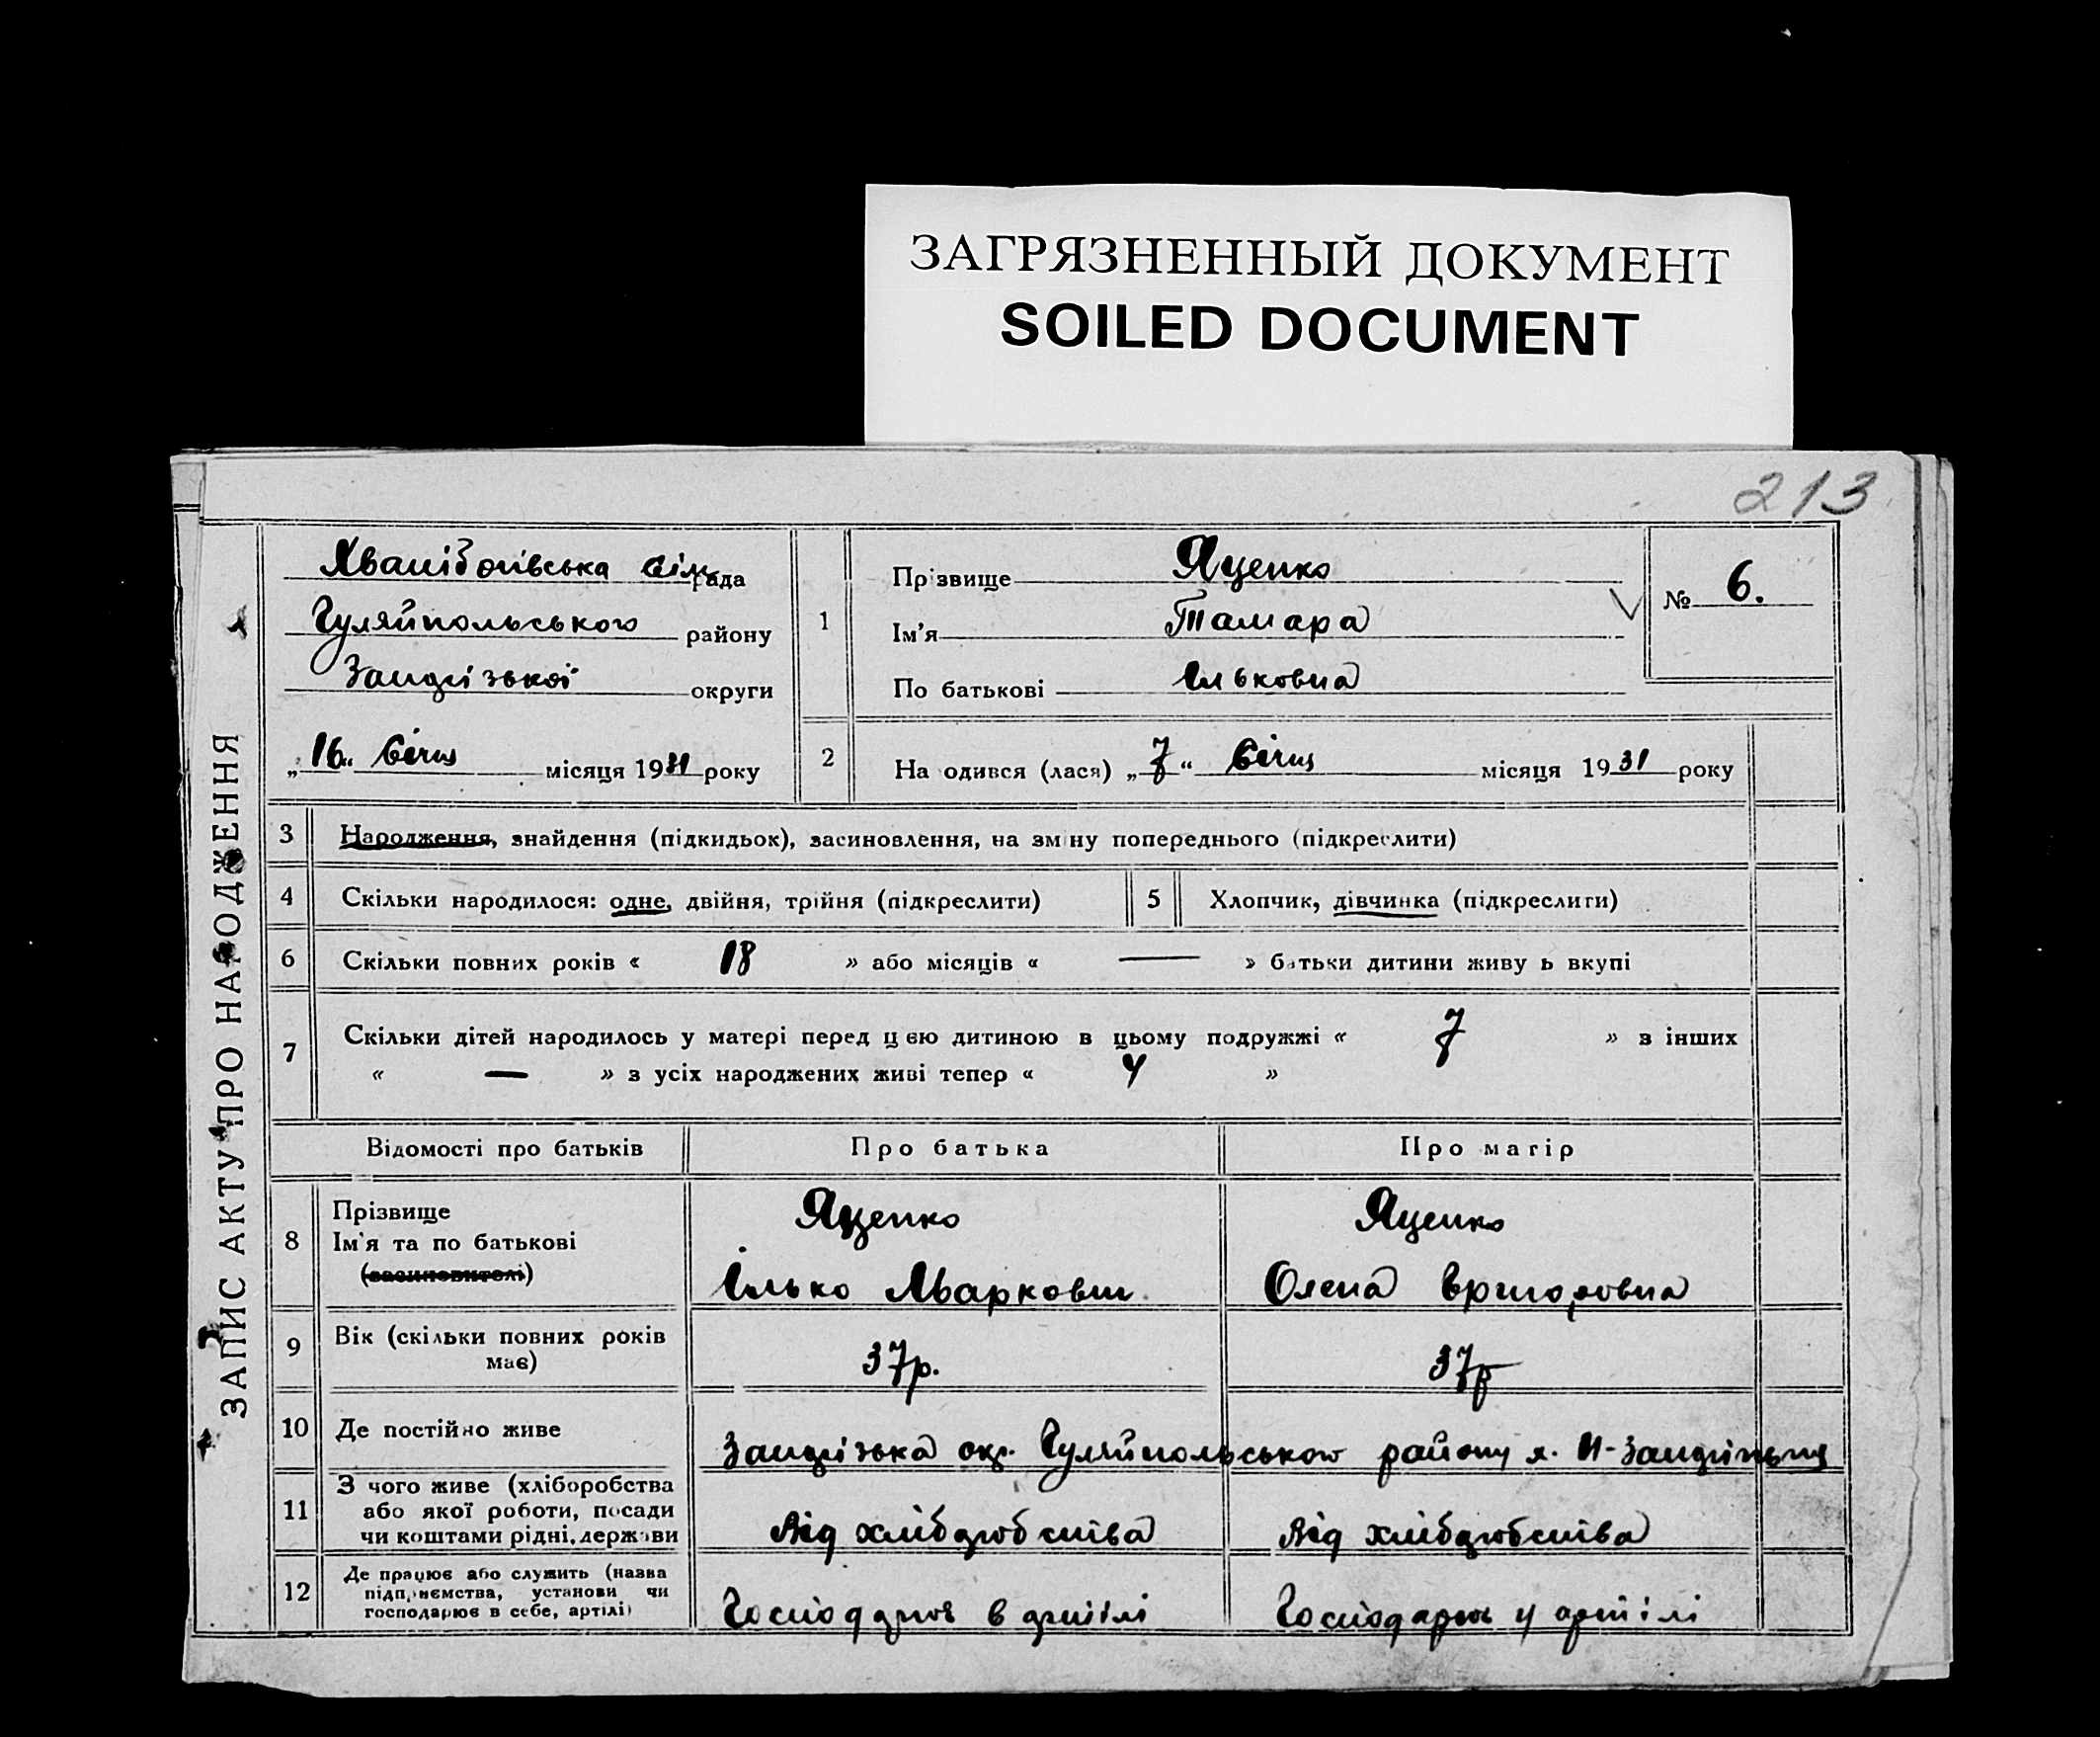 ЗАГРЯЗНЕННЫЙ ДОКУМЕНТ
SOILED DOCUMENT
213
ЗАПИС АКТУ ПРО НАРОДЖЕННЯ
сіль рада
Гуляйпольського району
Запорізької округи
„16“ січня місяця 1931 року
1
Прізвище Яценко
Ім'я Тамара
По батькові Ильковна
№ 6.
2 На одився (лася) „7“ Січня місяця 1931 року
3 Народження, знайдення (підкидьок), засиновлення, на зміну попереднього (підкреслити)
4 Скільки народилося: одне, двійня, трійня (підкреслити) 5 Хлопчик, дівчинка (підкреслити)
6 Скільки повних років « 18 » або місяців « — » батьки дитини живу ь вкупі
7 Скільки дітей народилось у матері перед цею дитиною в цьому подружжі « 7 » в інших
« — » з усіх народжених живі тепер « 4 »
Відомості про батьків Про батька Про матір
8 Прізвище Яценко Яценко
Ім'я та по батькові
(засиновителі) Ілько Маркович Олена Григоровна
9 Вік (скільки повних років має) 37р. 37р
10 Де постійно живе Запорізька окр. Гуляйпольського району
11 З чого живе (хліборобства
або якої роботи, посади
чи коштами рідні, держави Від хліборобства Від хліборобства
12 Де працює або служить (назва
підприємства, установи чи
господарює в себе, артілі) Господарює в артілі Господарює у артілі